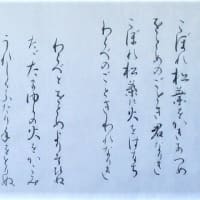 こぼれ松葉をかきあつめ
をとめのごとき君なりき
こぼれ松葉に火をはなち
わらべのごときわれなりき
わらべとをとめよりそひぬ
たゞたまゆらの火をかこみ
うれしくふたり手をとりぬ